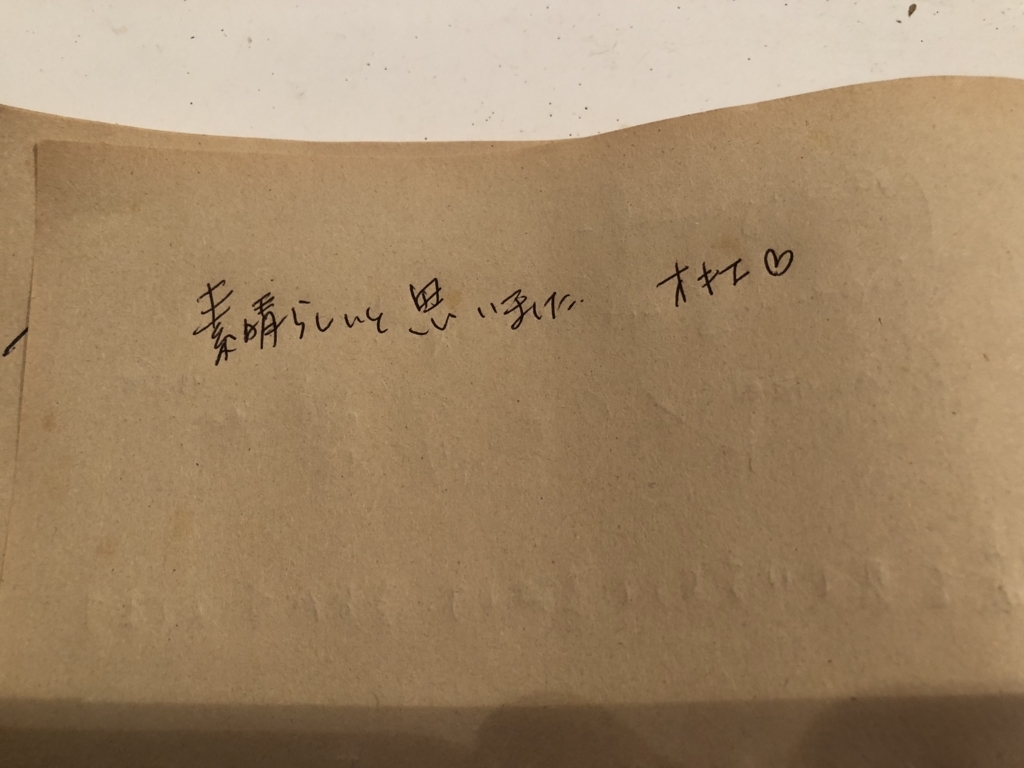 素晴らしいと思いました. オキエ♡